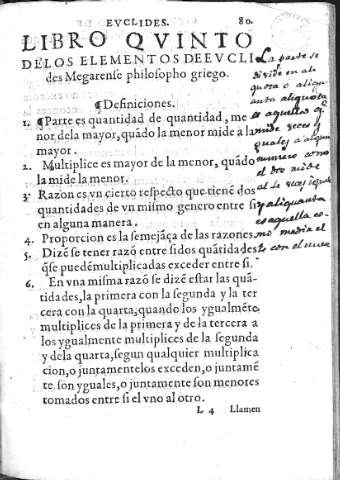 EVCLIDES. 80.
LIBRO QVINTO
DELOS ELEMENTOS DEEVCLI
des Megarense philosopho griego.
¶Definiciones.
1. ¶Parte es quantidad de quantidad, me
nor dela mayor, quãdo la menor mide a la
mayor.
2. Multiplice es mayor de la menor, quãdo
la mide la menor.
3 Razon es vn cierto respecto que tienẽ dos
quantidades de vn mismo genero entre si
en alguna manera.
4. Proporcion es la semejãça de las razones
5. Dizẽ se tener razõ entre si dos quãtidades
q̃ se puedẽ multiplicadas exceder entre si.
6. En vna misma razõ se dizẽ estar las quã-
tidades, la primera con la segunda y la ter
cera con la quarta, quando los ygualmẽte
multiplices de la primera y de la tercera a
los ygualmente multiplices de la segunda
y dela quarta, segun qualquier multiplica
cion, o juntamentelos exceden, o juntamẽ
te son yguales, o juntamente son menores
tomados entre si el vno al otro.
L 4 Llamen
La parte se
divide en ali
quota o aliqu
anta aliquota
es aquella q
mide veces y
guales a algun
numero como
el dos mide
al
y aliquanta
es aquella co
mo
con el